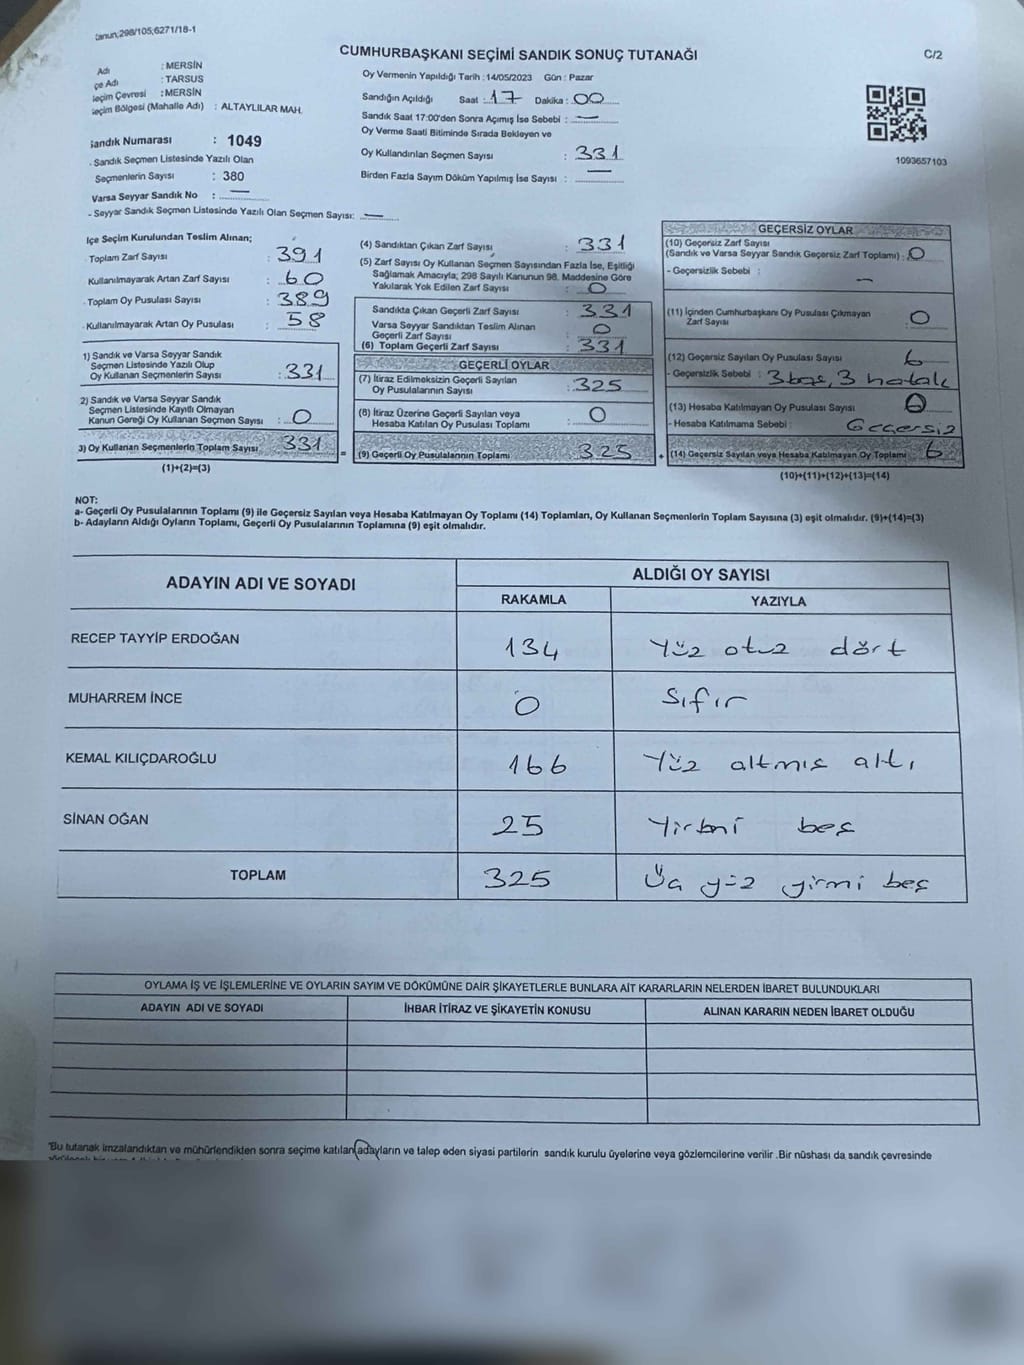 Kanun;298/105;6271/18-1
CUMHURBAŞKANI SEÇİMİ SANDIK SONUÇ TUTANAĞI
C/2
Adı : MERSİN
çe Adı : TARSUS
Seçim Çevresi : MERSİN
Seçim Bölgesi (Mahalle Adı) : ALTAYLILAR MAH.
Oy Vermenin Yapıldığı Tarih : 14/05/2023 Gün : Pazar
Sandığın Açıldığı Saat : 17 Dakika : 00
Sandık Saat 17:00'den Sonra Açımış İse Sebebi : —
Oy Verme Saati Bitiminde Sırada Bekleyen ve
Oy Kullandırılan Seçmen Sayısı : 331
Birden Fazla Sayım Döküm Yapılmış İse Sayısı : —
1093657103
Sandık Numarası : 1049
- Sandık Seçmen Listesinde Yazılı Olan
Seçmenlerin Sayısı : 380
Varsa Seyyar Sandık No : —
- Seyyar Sandık Seçmen Listesinde Yazılı Olan Seçmen Sayısı: —
İlçe Seçim Kurulundan Teslim Alınan;
. Toplam Zarf Sayısı : 391
Kullanılmayarak Artan Zarf Sayısı : 60
. Toplam Oy Pusulası Sayısı : 389
. Kullanılmayarak Artan Oy Pusulası : 58
1) Sandık ve Varsa Seyyar Sandık
Seçmen Listesinde Yazılı Olup
Oy Kullanan Seçmenlerin Sayısı : 331
2) Sandık ve Varsa Seyyar Sandık
Seçmen Listesinde Kayıtlı Olmayan
Kanun Gereği Oy Kullanan Seçmen Sayısı : 0
3) Oy Kullanan Seçmenlerin Toplam Sayısı 331
(1)+(2)=(3)
(4) Sandıktan Çıkan Zarf Sayısı : 331
(5) Zarf Sayısı Oy Kullanan Seçmen Sayısından Fazla İse, Eşitliği
Sağlamak Amacıyla; 298 Sayılı Kanunun 98. Maddesine Göre
Yakılarak Yok Edilen Zarf Sayısı : 0
Sandıkta Çıkan Geçerli Zarf Sayısı : 331
Varsa Seyyar Sandıktan Teslim Alınan
Geçerli Zarf Sayısı : 0
(6) Toplam Geçerli Zarf Sayısı : 331
GEÇERLİ OYLAR
(7) İtiraz Edilmeksizin Geçerli Sayılan
Oy Pusulalarının Sayısı : 325
(8) İtiraz Üzerine Geçerli Sayılan veya
Hesaba Katılan Oy Pusulası Toplamı : 0
= (9) Geçerli Oy Pusulalarının Toplamı 325
GEÇERSİZ OYLAR
(10) Geçersiz Zarf Sayısı
(Sandık ve Varsa Seyyar Sandık Geçersiz Zarf Toplamı) : 0
- Geçersizlik Sebebi : —
(11) İçinden Cumhurbaşkanı Oy Pusulası Çıkmayan
Zarf Sayısı : 0
(12) Geçersiz Sayılan Oy Pusulası Sayısı 6
- Geçersizlik Sebebi : 3 boş, 3 hatalı
(13) Hesaba Katılmayan Oy Pusulası Sayısı 0
- Hesaba Katılmama Sebebi : Geçersiz
+ (14) Geçersiz Sayılan veya Hesaba Katılmayan Oy Toplamı 6
(10)+(11)+(12)+(13)=(14)
NOT:
a- Geçerli Oy Pusulalarının Toplamı (9) ile Geçersiz Sayılan veya Hesaba Katılmayan Oy Toplamı (14) Toplamları, Oy Kullanan Seçmenlerin Toplam Sayısına (3) eşit olmalıdır. (9)+(14)=(3)
b- Adayların Aldığı Oyların Toplamı, Geçerli Oy Pusulalarının Toplamına (9) eşit olmalıdır.
ADAYIN ADI VE SOYADI
ALDIĞI OY SAYISI
RAKAMLA YAZIYLA
RECEP TAYYİP ERDOĞAN 134 Yüz otuz dört
MUHARREM İNCE 0 Sıfır
KEMAL KILIÇDAROĞLU 166 Yüz altmış altı
SİNAN OĞAN 25 Yirmi beş
TOPLAM 325 Üç yüz yirmi beş
OYLAMA İŞ VE İŞLEMLERİNE VE OYLARIN SAYIM VE DÖKÜMÜNE DAİR ŞİKAYETLERLE BUNLARA AİT KARARLARIN NELERDEN İBARET BULUNDUKLARI
ADAYIN ADI VE SOYADI İHBAR İTİRAZ VE ŞİKAYETİN KONUSU ALINAN KARARIN NEDEN İBARET OLDUĞU
*Bu tutanak imzalandıktan ve mühürlendikten sonra seçime katılan adayların ve talep eden siyasi partilerin sandık kurulu üyelerine veya gözlemcilerine verilir .Bir nüshası da sandık çevresinde